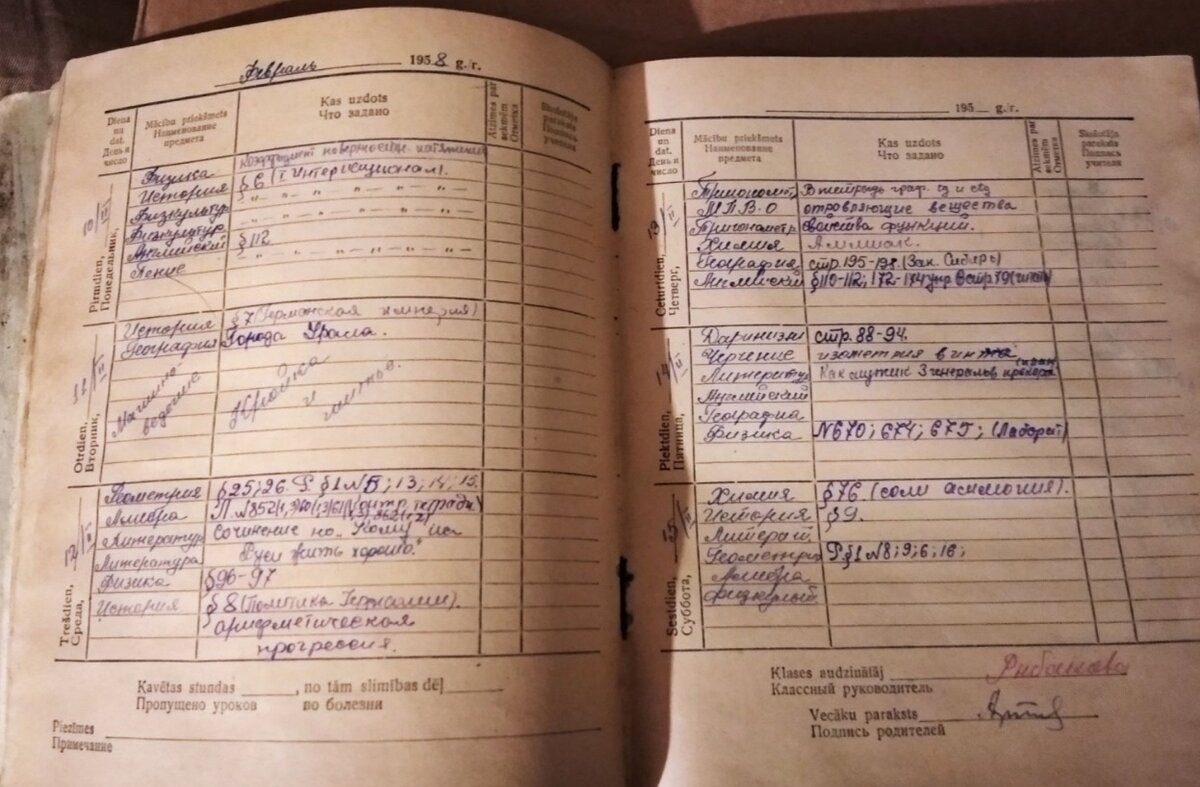 Февраль 1958 g./г.
Diena un dat. День и число
Mācību priekšmets Наименование предмета
Kas uzdots Что задано
Atzīmes par sekmēm Отметка
Skolotāja paraksts Подпись учителя
Pirmdien, Понедельник, 10/II
Физика Коэффициент поверхностн. натяжения
История § 6 (I Интернационал).
Физкультур
Физкультур
Английский § 112
Пение
Otrdien, Вторник, 11/II
История § 7 (Германская империя)
География Города Урала.
Машино-
ведение
Кройка
и
шитьё.
Trešdien, Среда, 12/II
Геометрия § 25; 26. Р. § 1 №5; 13; 14; 15.
Алгебра
Литератур Сочинение по „Кому на
Литература Руси жить хорошо."
Физика § 96-97
История § 8 (Политика Германии).
арифметическая
прогрессия.
Kavētas stundas , no tām slimības dēļ
Пропущено уроков по болезни
Piezīmes
Примечание
195 g./г.
Diena un dat. День и число
Mācību priekšmets Наименование предмета
Kas uzdots Что задано
Atzīmes par sekmēm Отметка
Skolotāja paraksts Подпись учителя
Ceturtdien, Четверг, 13/II
Тригонометр. В тетрадь граф.
М П. В. О отровляющие вещества
Тригонометр. Свойства функций.
Химия Аммиак.
География стр. 195-198. (Зап. Сибирь)
Английский § 110-112; 172-174 упр 8 стр 79
Piektdien, Пятница, 14/II
Дарвинизм стр. 88-94.
Черчение изометрия винта
Литератур Как мужик 3 генералов
Английский
География
Физика №670; 674; 675; (Лаборат)
Sestdien, Суббота, 15/II
Химия § 76 (соли аммония).
История § 9.
Литерат.
Геометри Р. § 1 №8; 9; 6; 16;
Алгебра
Физкульт
Klases audzinātāj
Классный руководитель
Vecāku paraksts
Подпись родителей